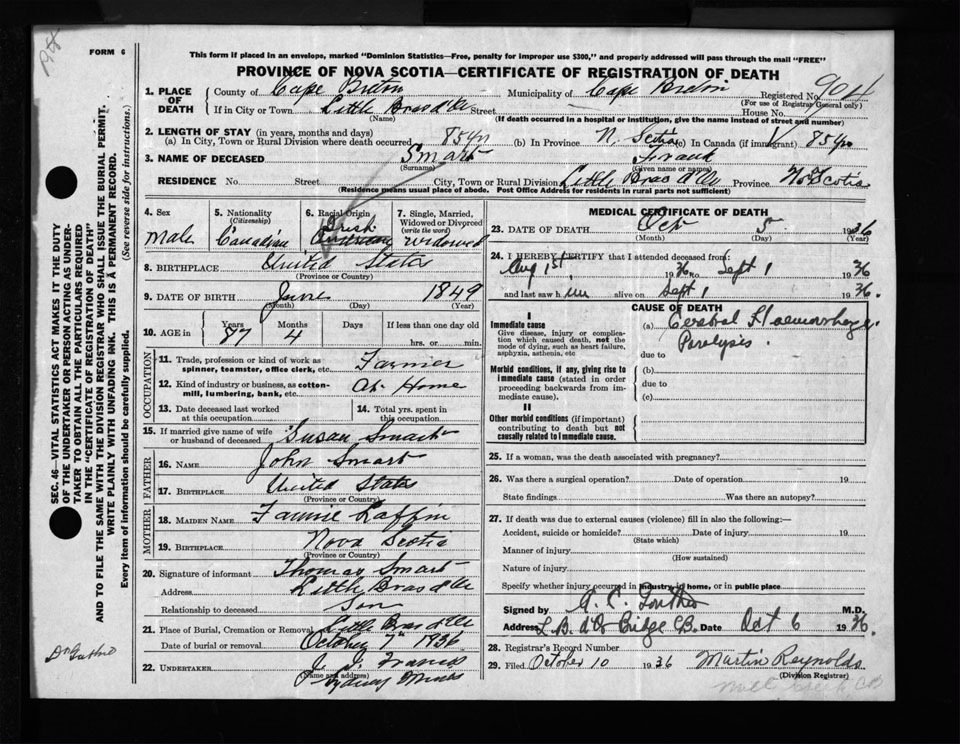 FORM 6
This form if placed in an envelope, marked "Dominion Statistics—Free, penalty for improper use $300," and properly addressed will pass through the mail "FREE"
PROVINCE OF NOVA SCOTIA—CERTIFICATE OF REGISTRATION OF DEATH
1. PLACE OF DEATH
County of Cape Breton Municipality of Cape Breton Registered No. 904
(For use of Registrar General only)
If in City or Town Little Bras d'Or Street House No.
(Name) (If death occurred in a hospital or institution, give the name instead of street and number)
2. LENGTH OF STAY (in years, months and days)
(a) In City, Town or Rural Division where death occurred 85 yr (b) In Province N. Scotia (c) In Canada (if immigrant) 85 yrs
3. NAME OF DECEASED Smart Frank
(Surname) (Given name or names)
RESIDENCE No. Street City, Town or Rural Division Little Bras d'Or Province No Scotia
(Residence means usual place of abode. Post Office Address for residents in rural parts not sufficient)
4. Sex
Male
5. Nationality
(Citizenship)
Canadian
6. Racial Origin
Irish
7. Single, Married, Widowed or Divorced
(write the word)
widowed
8. BIRTHPLACE United States
(Province or Country)
9. DATE OF BIRTH June 1849
(Month) (Day) (Year)
10. AGE in
Years Months Days If less than one day old
87 4 hrs. or min.
OCCUPATION
11. Trade, profession or kind of work as spinner, teamster, office clerk, etc. Farmer
12. Kind of industry or business, as cotton-mill, lumbering, bank, etc. At Home
13. Date deceased last worked at this occupation
14. Total yrs. spent in this occupation
15. If married give name of wife or husband of deceased Susan Smart
FATHER
16. NAME John Smart
17. BIRTHPLACE United States
(Province or Country)
MOTHER
18. MAIDEN NAME Fannie Laffin
19. BIRTHPLACE Nova Scotia
(Province or Country)
20. Signature of informant Thomas Smart
Address Little Bras d'Or
Relationship to deceased Son
21. Place of Burial, Cremation or Removal Little Bras d'Or
Date of burial or removal October 7th 1936
22. UNDERTAKER Francis
(Name and address) Sydney Mines
MEDICAL CERTIFICATE OF DEATH
23. DATE OF DEATH Oct 5 1936
(Month) (Day) (Year)
24. I HEREBY CERTIFY that I attended deceased from:
Aug 1st 1936 to Sept 1 1936
and last saw him alive on Sept 1 1936.
CAUSE OF DEATH
I
Immediate cause
Give disease, injury or complication which caused death, not the mode of dying, such as heart failure, asphyxia, asthenia, etc
(a) Cerebral Haemorrhage
Paralysis
due to
Morbid conditions, if any, giving rise to immediate cause (stated in order proceeding backwards from immediate cause).
(b)
due to
(c)
II
Other morbid conditions (if important) contributing to death but not causally related to immediate cause.
25. If a woman, was the death associated with pregnancy?
26. Was there a surgical operation? Date of operation 19
State findings Was there an autopsy?
27. If death was due to external causes (violence) fill in also the following:—
Accident, suicide or homicide? Date of injury 19
(State which)
Manner of injury
(How sustained)
Nature of injury
Specify whether injury occurred in industry, in home, or in public place
Signed by M.D.
Address L. B. d'Or Bridge C.B. Date Oct 6 1936.
28. Registrar's Record Number
29. Filed October 10 1936 Martin Reynolds
(Division Registrar)
SEC. 46—VITAL STATISTICS ACT MAKES IT THE DUTY OF THE UNDERTAKER OR PERSON ACTING AS UNDERTAKER TO OBTAIN ALL THE PARTICULARS REQUIRED IN THE "CERTIFICATE OF REGISTRATION OF DEATH" AND TO FILE THE SAME WITH THE DIVISION REGISTRAR WHO SHALL ISSUE THE BURIAL PERMIT.
WRITE PLAINLY WITH UNFADING INK. THIS IS A PERMANENT RECORD.
Every item of information should be carefully supplied. (See reverse side for instructions.)